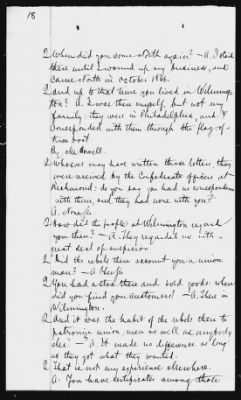 18
Q. When did you come North again? - A. I staid
there until I wound up my business, and
came North in October 1864.
Q. And up to that time you lived in Wilming-
ton? A. I was there myself, but not my
family; they were in Philadelphia, and I
corresponded with them through the flag-of-
truce boat
By Mr. Howell.
Q. Whoever may have written those letters, they
were received by the Confederate officers at
Richmond: do you say you had no correspondence
with them, and they had none with you?
A. None Sir.
Q. How did the people at Wilmington regard
you then? - A. They regarded me with a
great deal of suspicion
Q. Did the rebels there account you a union
man? - A. Yes Sir
Q. You had a store there and sold goods: where
did you find your customers? - A. There in
Wilmington.
Q. And it was the habit of the rebels there to
patronize union men as well as anybody
else? - A. It made no difference as long
as they got what they wanted.
Q. That is not my experience elsewhere.
A. You have certificates among those